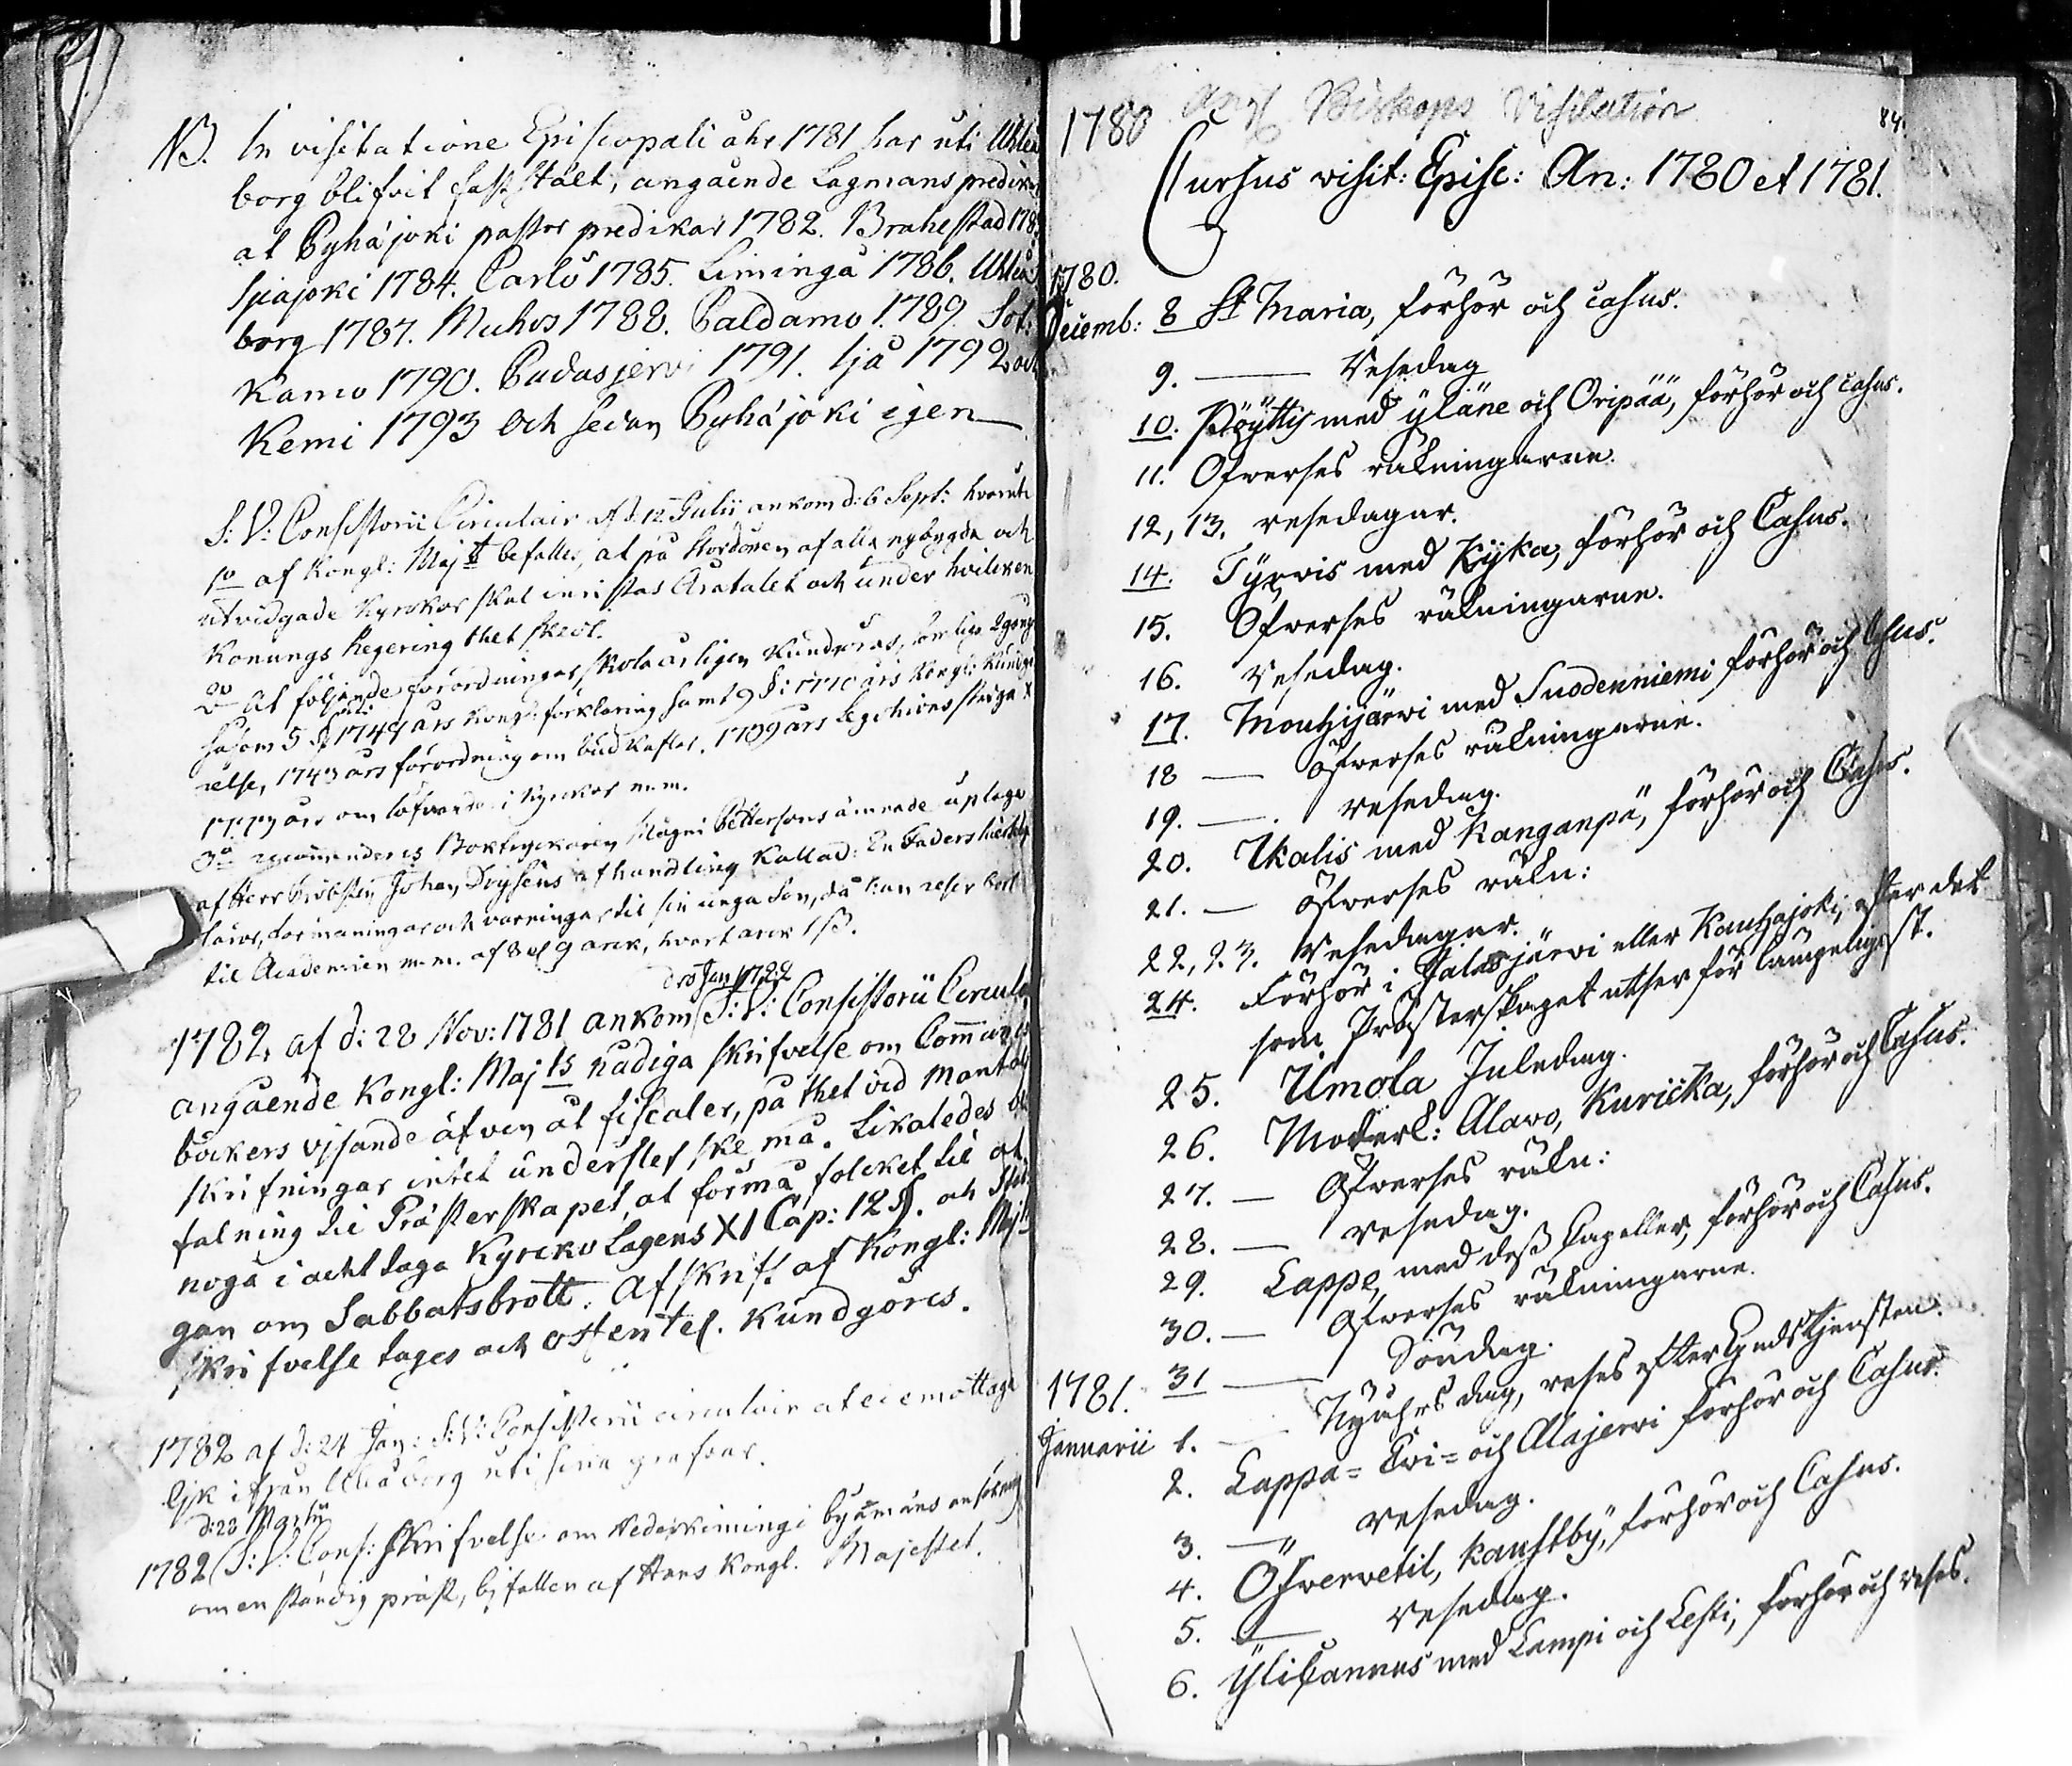 NB. In visitatione Episcopali åhr 1781 har uti Uhleå
borg blifvit fastställt, angående Lagmans predikn
at Pyhäjoki pastor predikar 1782. Brahestad 1783
Sjiajoki 1784. Carlö 1785. Limingå 1786. Uhleå
borg 1787. Muhos 1788. Paldamo 1789. Sot:
Kamo 1790. Pudasjervi 1791. Ijå 1792 och
Kemi 1793 och sedan Pyhäjoki igen
S: V: Consistorii Circulair af d: 12 Julii ankom d: 6 Sept: hvaruti
1o af Kongl: Maj:t befalles, at på Kordören af alla nybygda och
utvidgade Kyrckor skal inristas Åratalet och under hvilcken
Konungs Regering thet skedt.
2o At följande förordningar skola årligen Kundgöras, somlige 2 gong
såsom 5 § uti 1749 års Kongl: förklaring samt 9 §: i 1770 års Kongl: Kundgö
relse, 1743 års förordning om budkaflar. 1739 års Legohions stadga X
1773 års om i Kyrckor m.m.
3o recommenderes Boktryckaren Pettersons ämnade uplaga
af Herr Probsten Johan afhandling Kallad: En Faders
läror, förmaningar och varningar til sin unga Son, då han reser bort
til Academien m.m. af 8 el 9 arck, hvart arck 1 ß.
d 10 Jan 1782
1782, af d: 28 Nov: 1781 ankom S: V: Consistorii Circula
angående Kongl: Maj:ts nådiga skrifvelse om Communion
böckers visande äfven åt fiscaler, på thet vid Mantals
skrifningar intet underslef ske må. Likaledes be
falning til Prästerskapet, at förmå folcket til at
noga i acht taga Kyrcko Lagens XI Cap: 12 §. och Stad
gan om Sabbatsbrott. Afskrift af Kongl: Maj:ts
skrifvelse tages och offentel. Kundgöres.
1782 af d: 24 Jan: S: V: Consistorii circulair at ei emottaga
lijk ifrån Uhleåborg uti sina grafvar.
d: 28 Martii
1782 S: V: Cons: skrifvelse om Hederkimingi byamäns ansökning
om en ständig präst, bifallen af Hans Kongl. Majestet.
1780 Biskops Visitation
84.
Cursus visit: Episc: An: 1780 et 1781.
1780.
Decemb: 8 St Maria, förhör och casus.
9. — Resedag
10. Pöyttis med Yläne och Oripää, förhör och casus.
11. Öfverses räkningarne.
12, 13. resedagar.
14. Tyrvis med Kijka, förhör och Casus.
15. Öfverses räkningarne.
16. Resedag.
17. Mouhijärvi med Suodenniemi förhör och Casus.
18 — öfverses räkningarne.
19. —. resedag.
20. Ikalis med Kanganpä, förhör och Casus.
21. — öfverses räkn:
22, 23. Resedagar.
24. Förhör i Jalasjärvi eller Kauhajoki, efter det
som Prästerskapet utser för lämpeligast.
25. Ilmola Juledag.
26. Moderk: Alavo, Kuricka, förhör och Casus.
27. — Öfverses räkn:
28. — resedag.
29. Lappo, med dess Capeller, förhör och Casus.
30. — Öfverses räkningarne.
31 — Söndag.
1781.
Januarii 1. — Nyåhrsdag, reses efter Gudstjensten.
2. Lappa= Evi= och Alajervi förhör och Casus.
3. — resedag.
4. Öfvervetil, Kaustby, förhör och Casus.
5. — Resedag.
6. Ylikannus med Lampi och Lesti, förhör och reses.